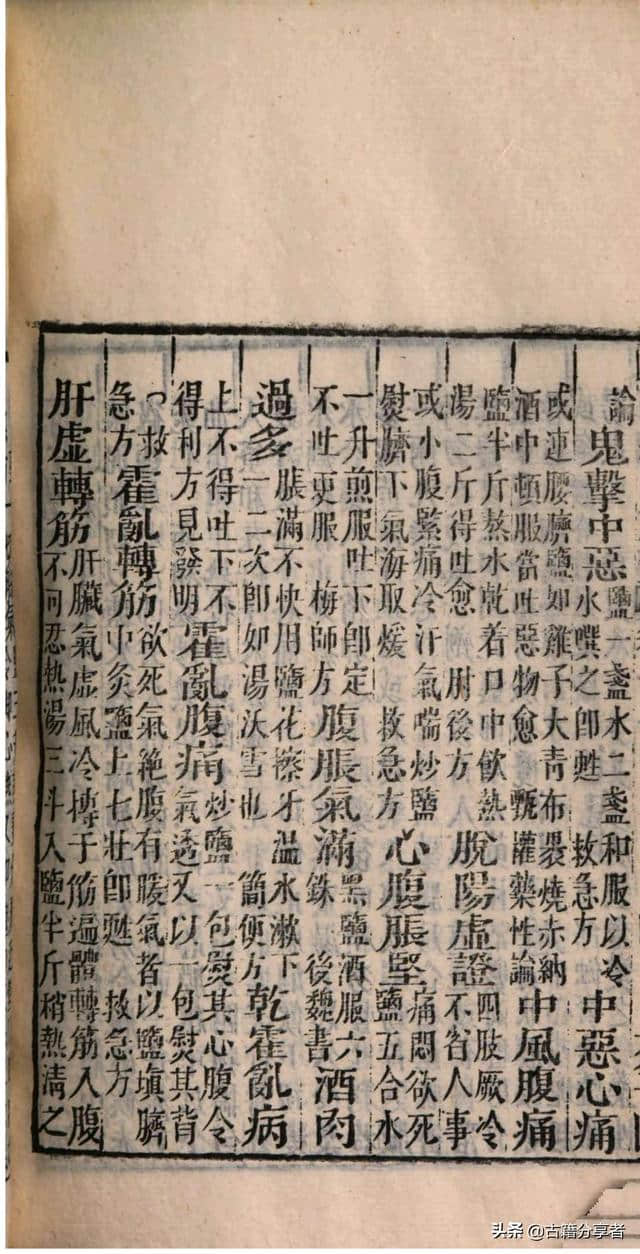 論鬼擊中惡鹽一盞水二盞和服以冷水噀之即甦 救急方中惡心痛
或連腰臍鹽如雞子大青布裹燒赤納酒中頓服當吐惡物愈 甄權藥性論中風腹痛
鹽半斤熬水乾着口中飲熱湯二斤得吐愈 肘後方脫陽虛證四肢厥冷不省人事
或小腹緊痛冷汗氣喘炒鹽熨臍下氣海取煖 救急方心腹脹堅痛悶欲死鹽五合水
一升煎服吐下即定不吐更服 梅師方腹脹氣滿黑鹽酒服六銖 後魏書酒肉
過多脹滿不快用鹽花擦牙溫水漱下一二次即如湯沃雪也 簡便方乾霍亂病
上不得吐下不得利方見發明霍亂腹痛炒鹽一包熨其心腹令氣透又以一包熨其背
○救急方霍亂轉筋欲死氣絶腹有暖氣者以鹽填臍中灸鹽上七壯即甦 救急方
肝虛轉筋肝臟氣虛風冷搏于筋遍體轉筋入腹不可忍熱湯三斗入鹽半斤稍熱漬之
头条 @古籍分享者